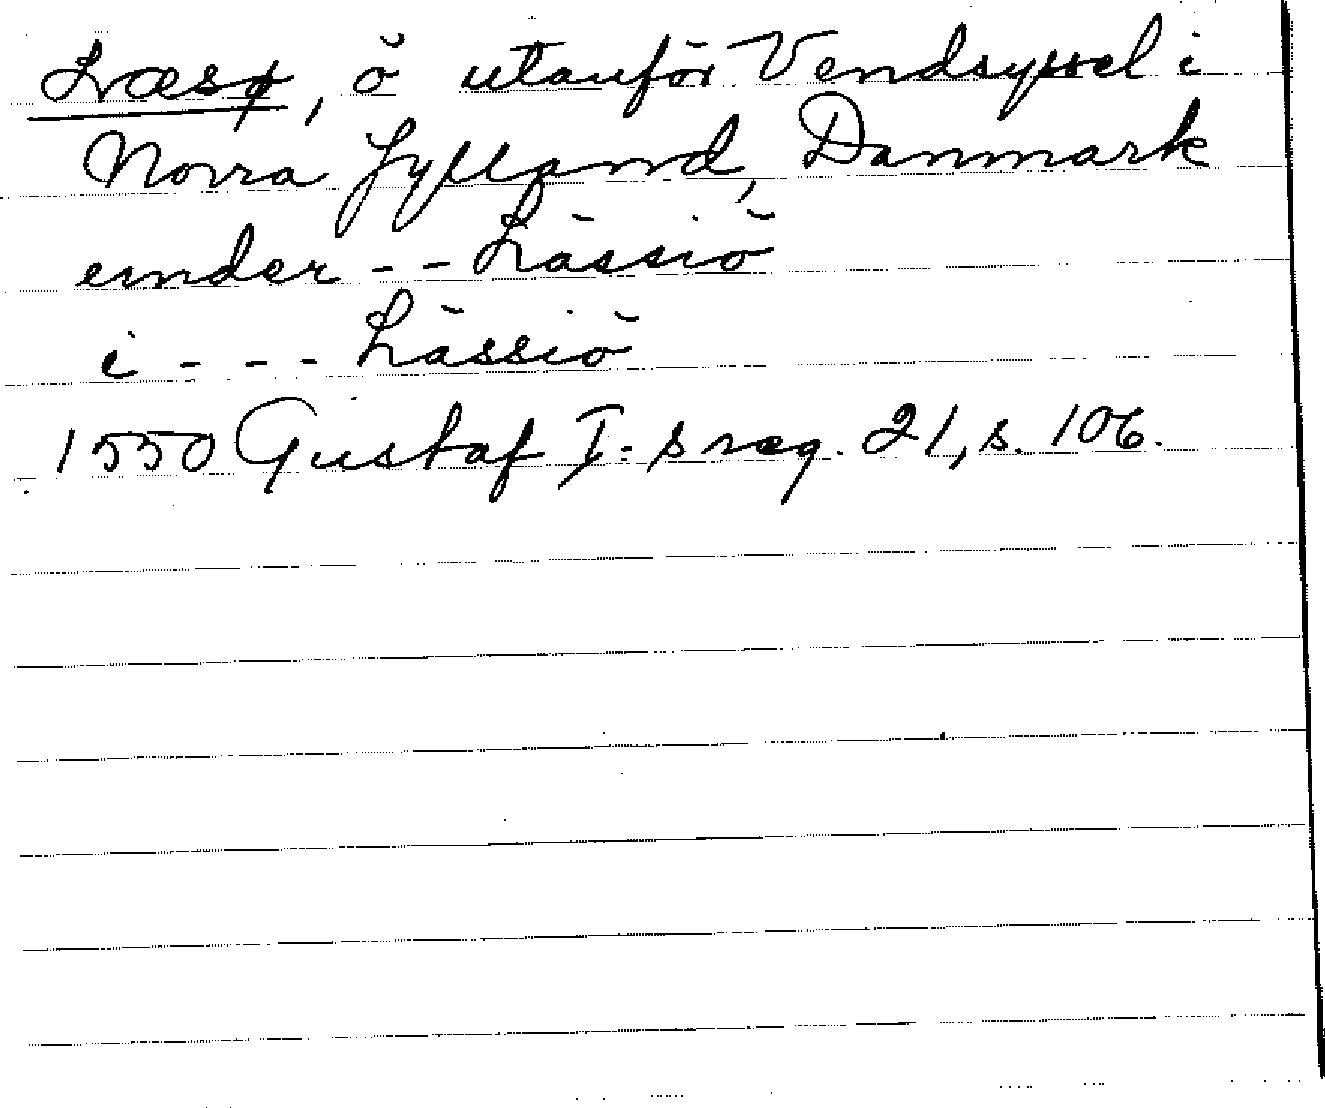 Læsø, ö utanför Vendsyssel i
Norra Jylland, Danmark
under - - Lässiö
i - - - Lässiö
1550 Gustaf I:s reg. 21, s. 106.